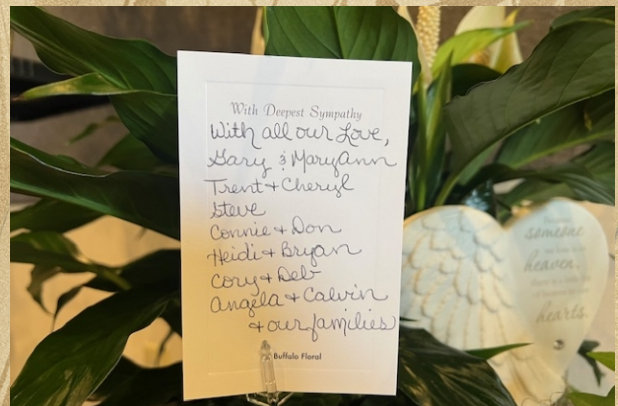 With Deepest Sympathy
With all our Love,
Gary & MaryAnn
Trent + Cheryl
Steve
Connie + Don
Heidi + Bryan
Cory + Deb
Angela + Calvin
+ our families
Buffalo Floral
someone
heaven.
hearts.